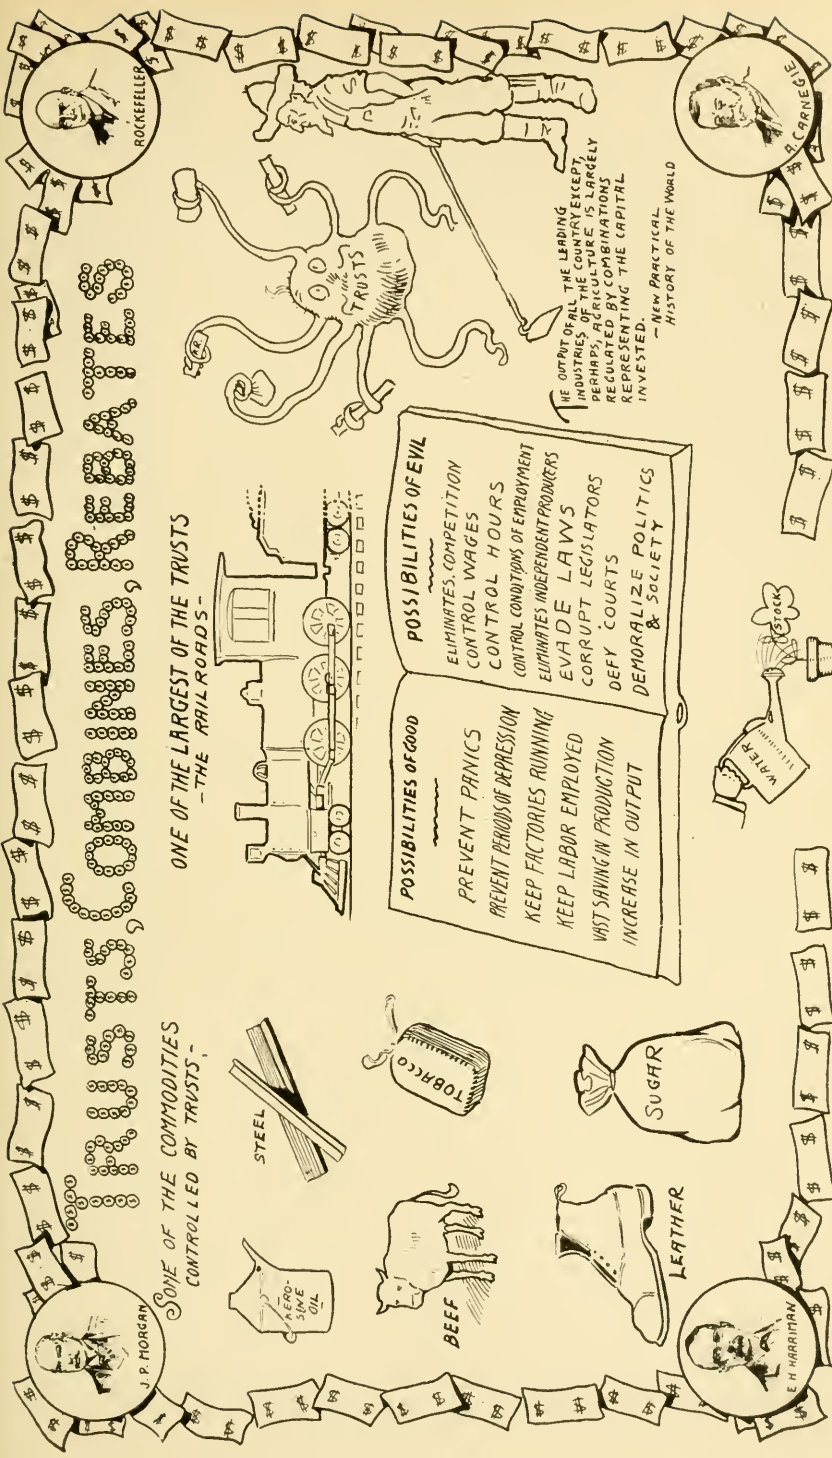 TRUSTS, COMBINES, REBATES
J. P. MORGAN
ROCKEFELLER
SOME OF THE COMMODITIES
CONTROLLED BY TRUSTS,-
KERO-
SINE
OIL
STEEL
BEEF
TOBACCO
LEATHER
SUGAR
ONE OF THE LARGEST OF THE TRUSTS
-THE RAILROADS-
POSSIBILITIES OF GOOD
PREVENT PANICS
PREVENT PERIODS OF DEPRESSION
KEEP FACTORIES RUNNING
KEEP LABOR EMPLOYED
VAST SAVING IN PRODUCTION
INCREASE IN OUTPUT
POSSIBILITIES OF EVIL
ELIMINATES COMPETITION
CONTROL WAGES
CONTROL HOURS
CONTROL CONDITIONS OF EMPLOYMENT
ELIMINATES INDEPENDENT PRODUCERS
EVADE LAWS
CORRUPT LEGISLATORS
DEFY COURTS
DEMORALIZE POLITICS
& SOCIETY
WATER
STOCK
R.R.
TRUSTS
THE OUTPUT OF ALL THE LEADING
INDUSTRIES OF THE COUNTRY EXCEPT,
PERHAPS, AGRICULTURE IS LARGELY
REGULATED BY COMBINATIONS
REPRESENTING THE CAPITAL
INVESTED.
- NEW PRACTICAL
HISTORY OF THE WORLD
E H HARRIMAN
A. CARNEGIE